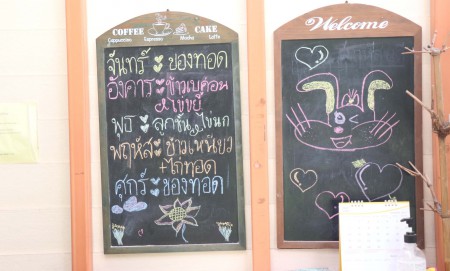 COFFEE CAKE
Cappuccino Espresso Mocha Latte
จันทร์ ของทอด
อังคาร ข้าวเบค่อน
ไข่ขยี้
พุธ ลูกชิ้น,ไข่นก
พฤหัส ข้าวเหนียว
+ไก่ทอด
ศุกร์ ของทอด
Welcome